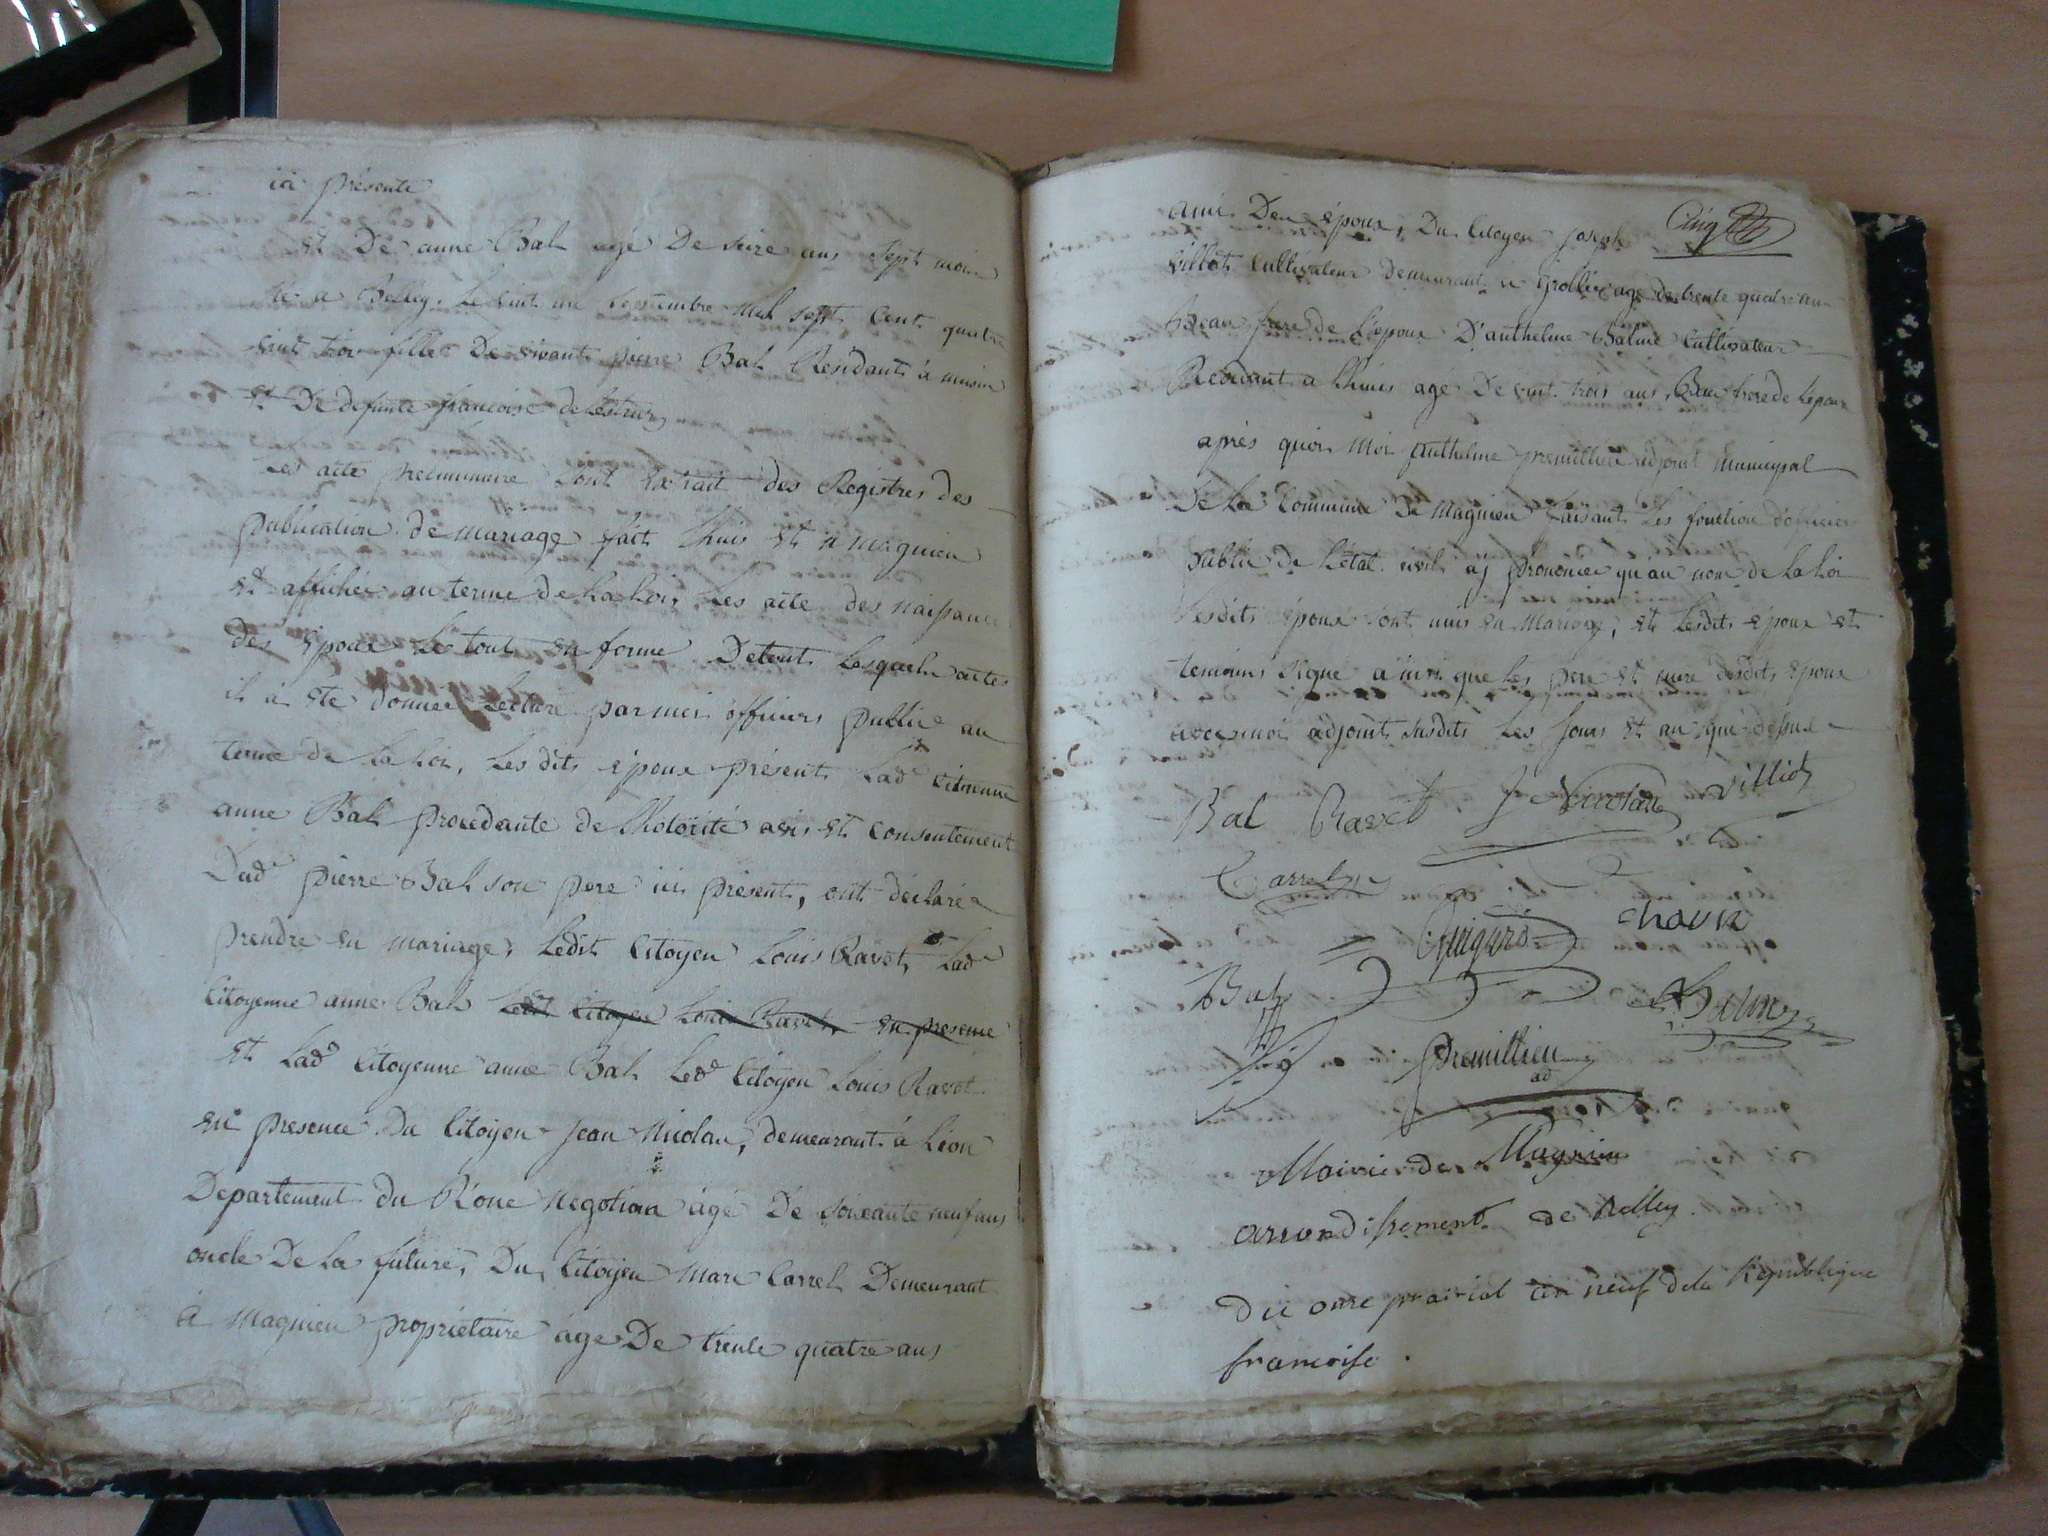 ici présente
et De anne Bal agé De seize ans sept mois
né a Belley. Le vint un septembre mil sept Cent quatre
vint trois fille De vivant pierre Bal Résidant à
et De defunte francoise
Les acte preliminaire sont Extrait des Registres des
publication de mariage fait lhuis et a magnieu
et affichée au terme de La Loi, Les acte des naissance
des époux Le tout en forme De tout Lesquels actes
il à été donner Lecture par moi officiers public au
terme de La Loi, Les dits époux présent Lade Citoienne
anne Bal procedante de Lhotorité avis et consentement
Dud. pierre Bal son pere ici présent, ont déclaré
prendre en mariage, Ledit Citoyen Louis Ravot, Lade
Citoyenne anne Bal Ledit Citoyen Louis Ravot, en presence
et Lade Citoyenne anne Bal Led. Citoyen Louis Ravot
en presence Du Citoyen Jean Nicolan, demeurant à Lion
Departement du Rone Negotian âgé De soixante neuf ans
oncle De La future, Du Citoyen Marc Carrel Demeurant
à Magnieu propriétaire âgé De trente quatre ans
amis Des époux, Du Citoyen Joseph
villiot Cultivateur Demeurant à Grollée age de trente quatre ans
Beau frere de Lépoux D'anthelme Balme Cultivateur
Residant a Lhuis age De vint trois ans, Beau frere de Lépoux
après quoi Moi Anthelme premillieu adjoint Municipal
De La Commune De Magnieu faisant Les fonction d'officier
public de Létat civil aj prononcer qu'au nom de La Loi
Lesdits époux sont unis en mariage, et Lesdits époux et
temoins signé ainsi que Les pere et mere desdits époux
avec moi adjoint susdits Les Jours et an que dessus
Bal Ravet J Nicolan villiot
Carrel
Guigard chavin
Bal Balme
premillieu
ad
Mairie de Magnieu
arrondissement de Belley.
Du onze prairial an neuf de la Republique
francoise.